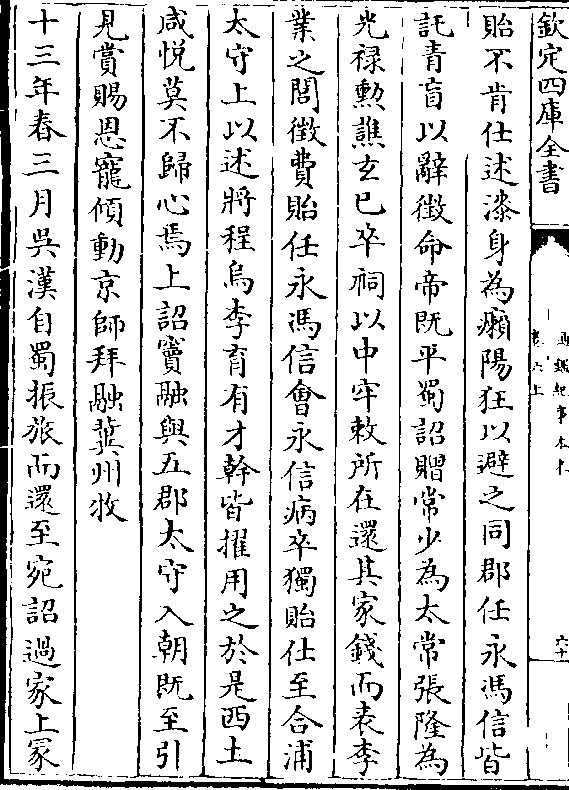 欽定四庫全書
卷六上
貽不肯仕述漆身為癩陽狂以避之同郡任永馮信皆
託青盲以辭徵命帝既平蜀詔贈常少為太常張隆為
光禄勲譙玄已卒祠以中牢敕所在還其家錢而表李
業之閭徵費貽任永馮信會永信病卒獨貽仕至合浦
太守上以述將程烏李育有才幹皆擢用之於是西土
咸悦莫不歸心焉上詔竇融與五郡太守入朝既至引
見賞賜恩寵傾動京師拜融冀州牧
十三年春三月吳漢自蜀振旅而還至宛詔過家上冢